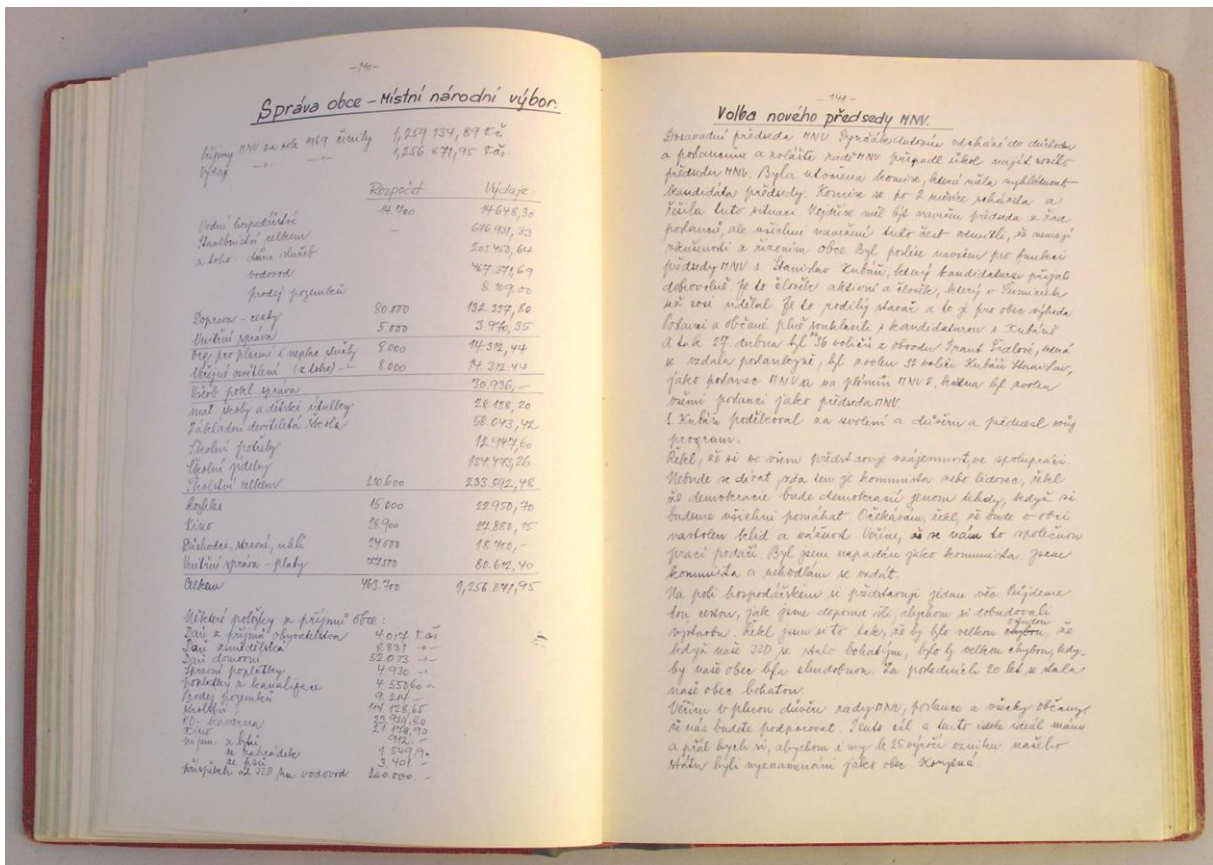 -140-
Správa obce - Místní národní výbor.
Příjmy MNV za rok 1969 činily 1,259.134,89 Kčs
Výdaje -"- -"- 1,256.871,95 Kčs.
Rozpočet: Výdaje:
Vodní hospodářství 14.700 14.648,30
Stavebnictví celkem - 646.931,33
z toho: dům služeb 201.450,64
vodovod 467.371,69
prodej pozemků 8.109.00
Doprava - cesty 80.000 132.337,60
Vnitřní správa 5.000 3.970,35
Org. pro placené i neplac. služby 8.000 14.312,44
Veřejné osvětlení (z toho) 8.000 14.312,44
30.936,-
mat. školy a dětské útulky 28.128,20
Základní devítiletá škola 58.043,42
Školní potřeby 12.947,60
Školní jídelny 134.473,26
Školství celkem 210.600 233.592,48
Rozhlas 15.000 22.950,70
Kino 28.900 27.880,15
Důchodci, stravné, uhlí 24.000 18.700,-
Vnitřní správa - platy 77.500 80.612,40
Celkem 463.700 1,256.871,95
Některé položky z příjmů obce:
Daň z příjmů obyvatelstva 4.017 Kčs
Daň zemědělská 8.831 -"-
Daň domovní 52.013 -"-
Správní poplatky 4.930 -"-
poplatky z kanalizace 4.550,60 -"-
Prodej pozemků 9.214.-
Školství 114.128,65
KD - kavárna 23.929,80
Kino 21.178,90
z bytů 912.-
ze zahrádek 1.549,90
ze psů 3.401.-
příspěvek od JZD na vodovod 260.000.-
-141-
Volba nového předsedy MNV.
Dosavadní předseda MNV Antonín odchází do důchodu
a poslancům a zvláště radě MNV připadl úkol najít nového
předsedu MNV. Byla utvořena komise, která měla vyhlédnout
kandidáta předsedy. Komise se po 2 měsíce scházela a
řešila tuto situaci. Nejdříve měl být navržen předseda z řad
poslanců, ale všichni navržení tuto čest odmítli, že nemají
zkušenosti s řízením obce. Byl posléze navržen pro funkci
předsedy MNV s. Stanislav Kubáň, který kandidaturu přijal
dobrovolně. Je to člověk aktivní a člověk, který v
už cosi udělal. Je to stavař a to je pro obec výhoda
Poslanci a občané plně souhlasili s kandidaturou s. Kubáně
A tak 27. dubna byl 36 voličů z obvodu Frant. která
se vzdala poslankyně, byl zvolen 32 voliči Kubáň Stanislav,
jako poslanec MNV a na plénum MNV 2. května byl zvolen
všemi poslanci jako předseda MNV.
S. Kubáň poděkoval za zvolení a důvěru a přednesl svůj
program.
Řekl, že si ve všem představuje vzájemnost, ve spolupráci.
Nebude se dívat, zda ten je komunista nebo lidovec, řekl
že demokracie bude demokracií jenom tehdy, když si
budeme všichni pomáhat. Očekávám, řekl, že bude v obci
nastolen klid a vážnost. Věřím, že se nám to společnou
prací podaří. Byl jsem napadán jako komunista jsem
komunista a nehodlám se vzdát.
Na poli hospodářském si představuji jednu věc Půjdeme
tou cestou, jak jsme doposud šli, abychom si dobudovali
výstavbu. Řekl jsem si to tak, že by bylo velkou chybou, že
když naše JZD se stalo bohatým, bylo by velkou chybou, kdy-
by naše obec byla chudobnou. Za posledních 20 let se stala
naše obec bohatou.
Věřím v plnou důvěru rady MNV, poslance a všecky občany,
že nás budete podporovat. Tento cíl a tento ideál máme
a přál bych si, abychom i my k 25 výročí vzniku našeho
státu byli vyznamenáni jako obec Komjatná